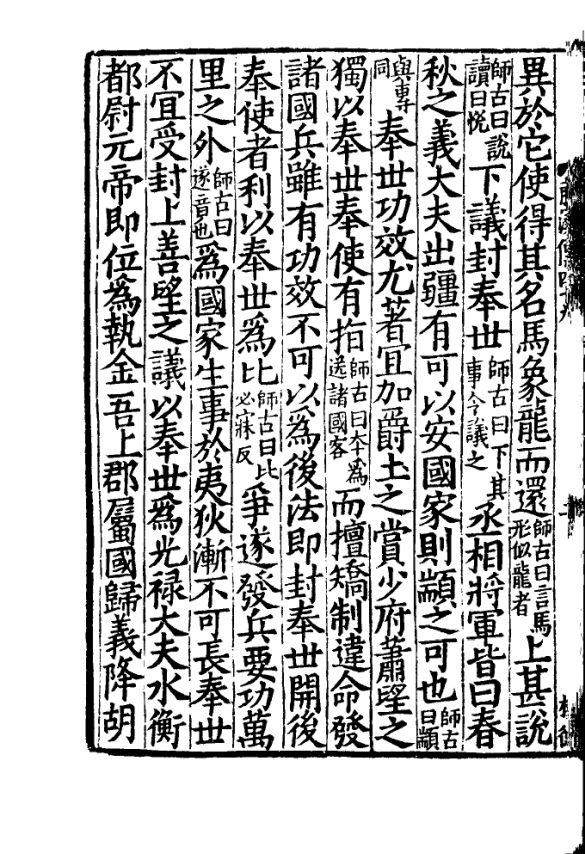 異於它使得其名馬象龍而還師古曰言馬形似龍者上甚說
師古曰說讀曰悅下議封奉世師古曰下其事令議之丞相將軍皆曰春
秋之義大夫出疆有可以安國家則顓之可也師古曰顓
與專同奉世功效尤著宜加爵土之賞少府蕭望之
獨以奉世奉使有指師古曰本為送諸國客而擅矯制違命發
諸國兵雖有功效不可以為後法即封奉世開後
奉使者利以奉世為比師古曰比必寐反爭逐發兵要功萬
里之外師古曰逐音也為國家生事於夷狄漸不可長奉世
不宜受封上善望之議以奉世為光祿大夫水衡
都尉元帝即位為執金吾上郡屬國歸義降胡